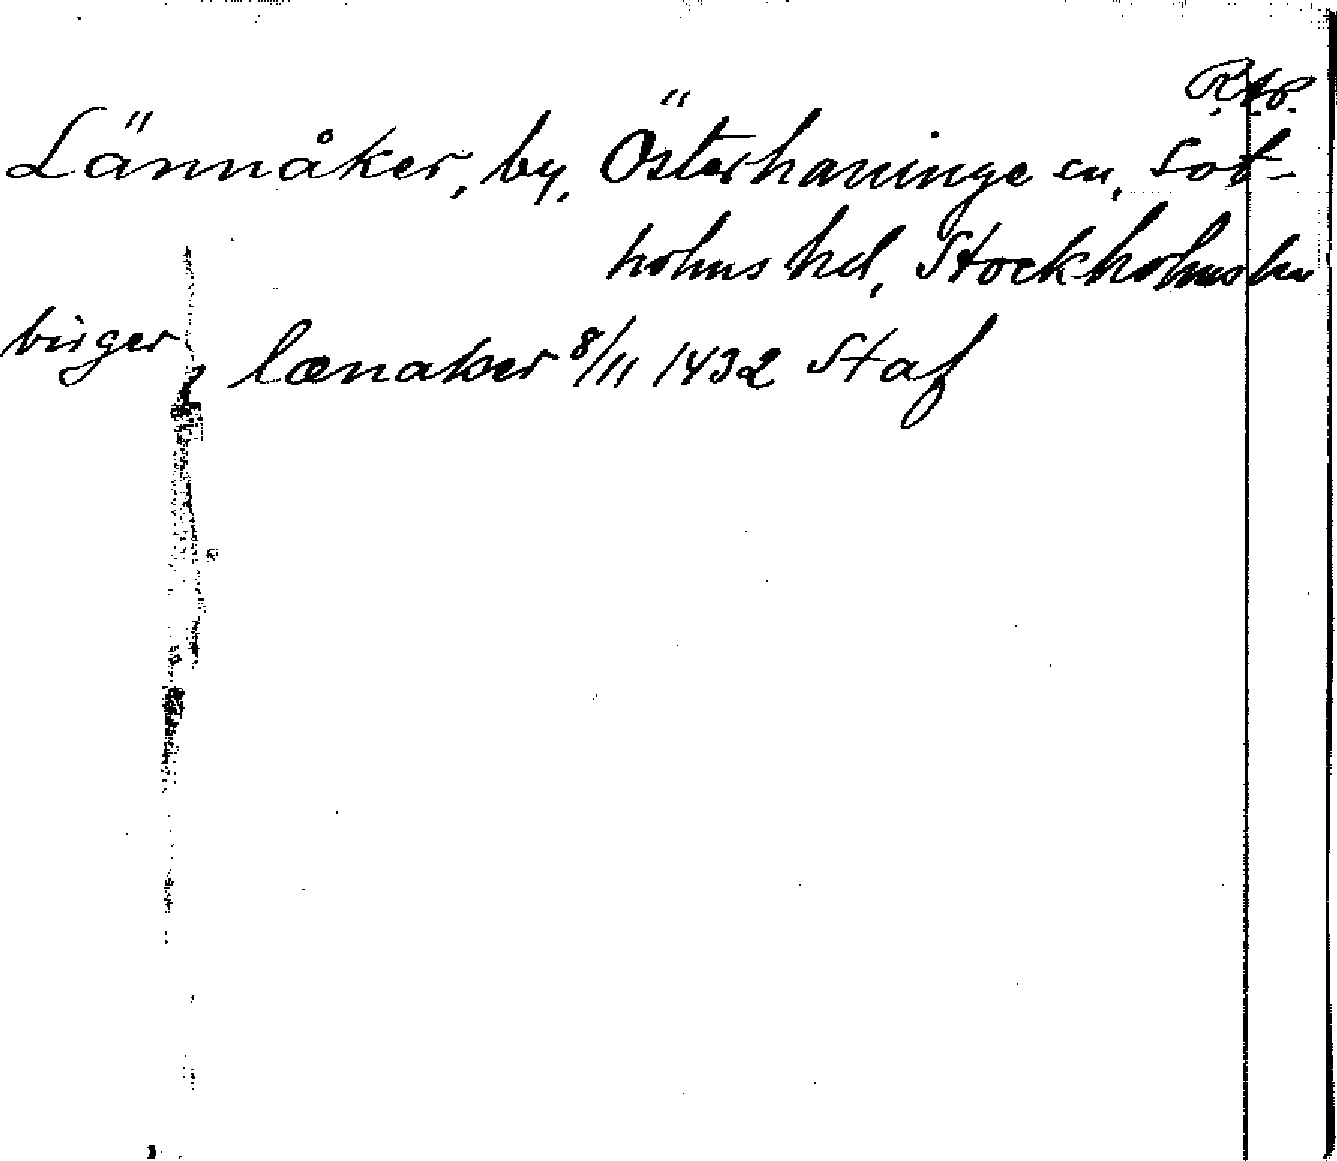 R.A.P.
Lännåker, by, Österhaninge sn, Sot-
holms hd, Stockholms län
birger lænaker 8/11 1432 Staf